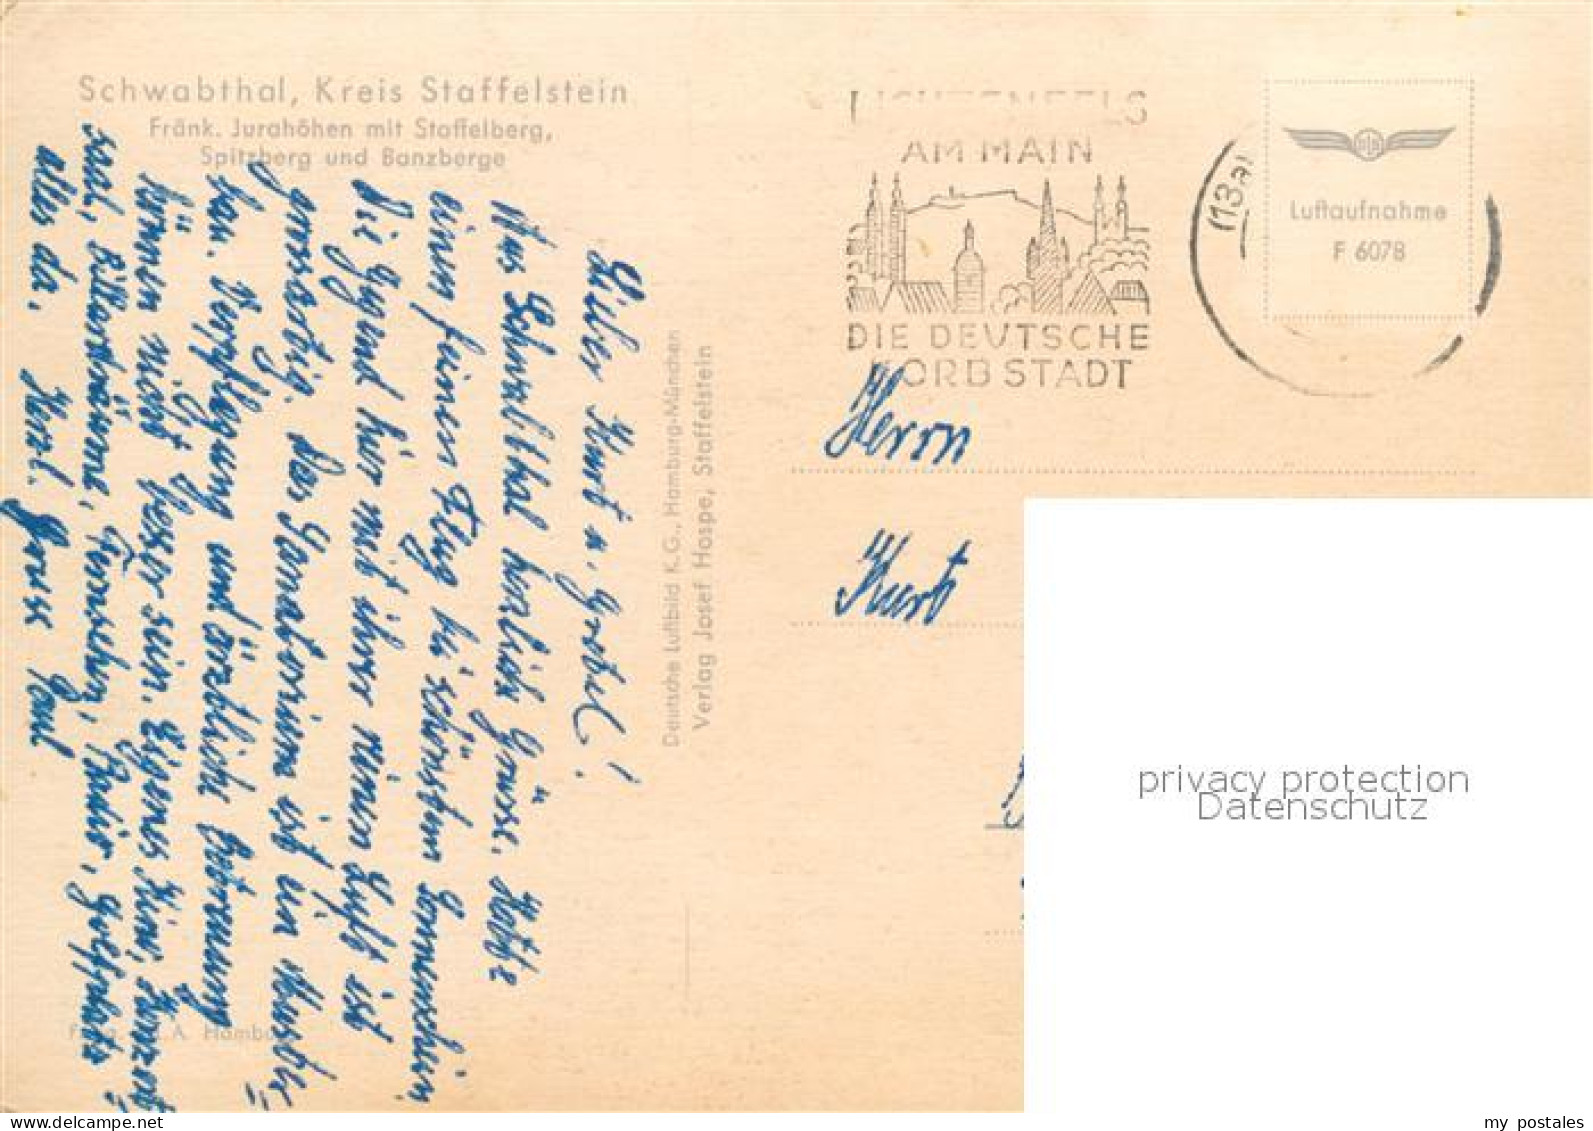 Schwabthal, Kreis Staffelstein
Fränk. Jurahöhen mit Staffelberg,
Spitzberg und Banzberge
Lieber Kurt u. Gretel!
Aus Schwabthal herzlich Grüsse. Hatte
einen feinen Flug bei schönstem Sonnenschein
Die Gegend hier mit ihrer reinen Luft ist
grossartig. Das Sanatorium ist ein Muster=
bau. Verpflegung und ärztliche Betreuung
können nicht besser sein. Eigenes Kino, Konzert=
saal, Billardräume, Fernsehen, Radio, Golfplatz
alles da. Herzl. Gruss Paul
Deutsche Luftbild K.G., Hamburg-München
Verlag Josef Hospe, Staffelstein
LICHTENFELS
AM MAIN
DIE DEUTSCHE
KORBSTADT
(13a)
Luftaufnahme
F 6078
Herrn
Kurt
privacy protection
Datenschutz
my postales